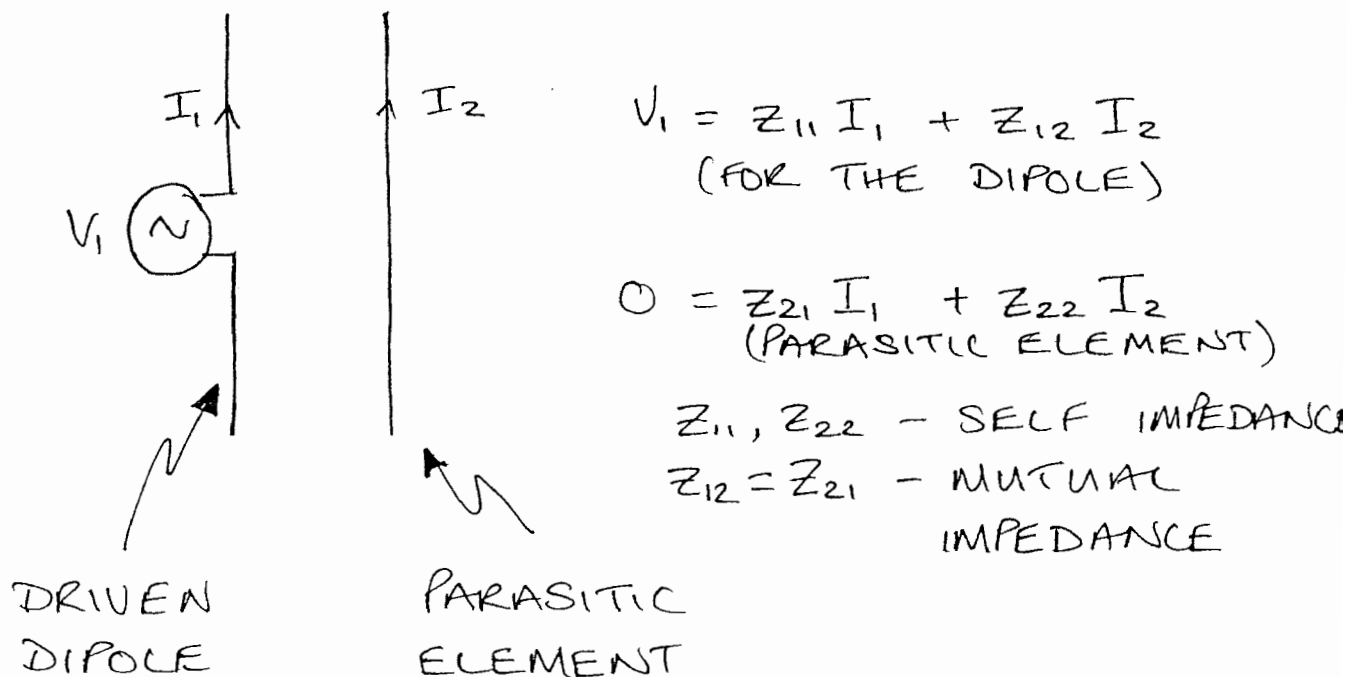 I₁
I₂
V₁
V₁ = Z₁₁ I₁ + Z₁₂ I₂
(FOR THE DIPOLE)
O = Z₂₁ I₁ + Z₂₂ I₂
(PARASITIC ELEMENT)
Z₁₁, Z₂₂ - SELF IMPEDANCE
Z₁₂ = Z₂₁ - MUTUAL
IMPEDANCE
DRIVEN
DIPOLE
PARASITIC
ELEMENT